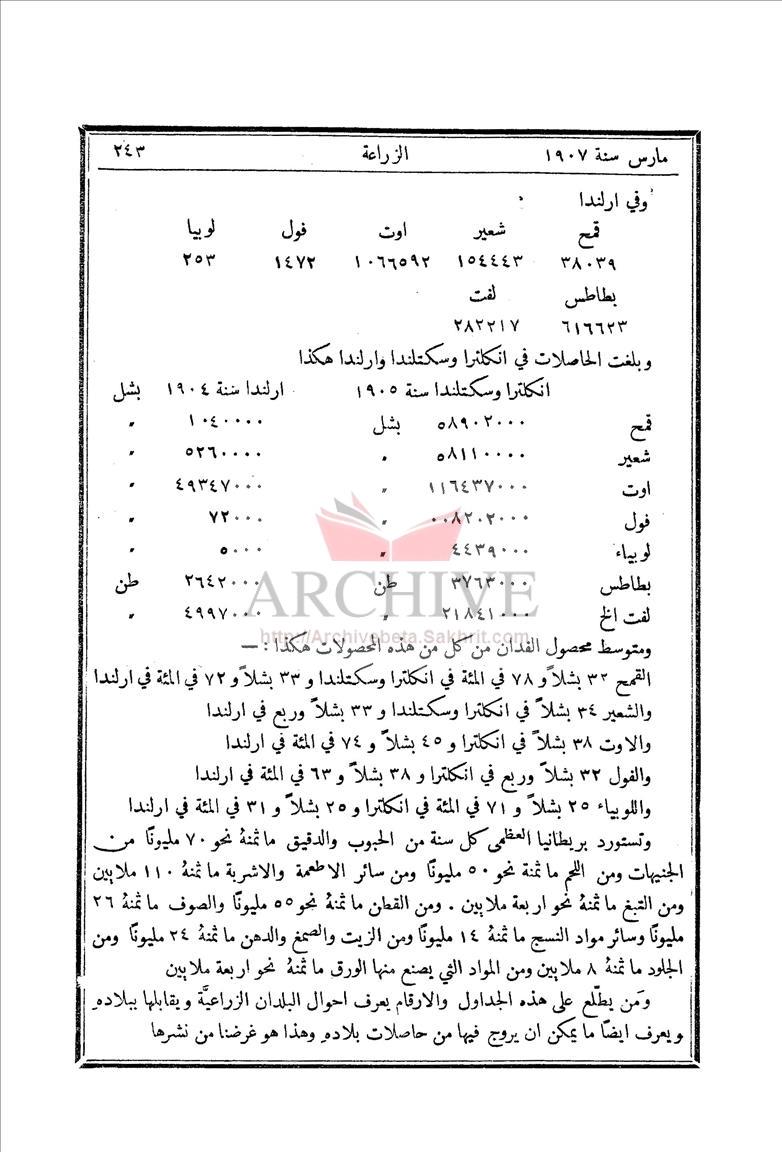 مارس سنة ١٩٠٧ الزراعة ٢٤٣
وفي ارلندا
قمح شعير اوت فول لوبيا
٣٨٠٣٩ ١٥٤٤٤٣ ١٠٦٦٥٩٢ ١٤٧٢ ٢٥٣
بطاطس لفت
٦١٦٦٢٣ ٢٨٢٢١٧
وبلغت الحاصلات في انكلترا وسكتلندا وارلندا هكذا
انكلترا وسكتلندا سنة ١٩٠٥ ارلندا سنة ١٩٠٤ بشل
قمح ٥٨٩٠٢٠٠٠ بشل ١٠٤٠٠٠٠ "
شعير ٥٨١١٠٠٠٠ " ٥٢٦٠٠٠٠ "
اوت ١١٦٤٣٧٠٠٠ " ٤٩٣٤٧٠٠٠ "
فول ٠٠٨٢٠٢٠٠٠ " ٧٢٠٠٠ "
لوبياء ٤٤٣٩٠٠٠ " ٥٠٠٠ "
بطاطس ٣٧٦٣٠٠٠ طن ٢٦٤٢٠٠٠ طن
لفت الخ ٢١٨٤١٠٠٠ " ٤٩٩٧٠٠٠ "
ARCHIVE
http://Archivebeta.Sakhrit.com
ومتوسط محصول الفدان من كل من هذه المحصولات هكذا : —
القمح ٣٢ بشلاً و ٧٨ في المئة في انكلترا وسكتلندا و ٣٣ بشلاً و ٧٢ في المئة في ارلندا
والشعير ٣٤ بشلاً في انكلترا وسكتلندا و ٣٣ بشلاً وربع في ارلندا
والاوت ٣٨ بشلاً في انكلترا و ٤٥ بشلاً و ٧٤ في المئة في ارلندا
والفول ٣٢ بشلاً وربع في انكلترا و ٣٨ بشلاً و ٦٣ في المئة في ارلندا
واللوبياء ٢٥ بشلاً و ٧١ في المئة في انكلترا و ٢٥ بشلاً و ٣١ في المئة في ارلندا
وتستورد بريطانيا العظمى كل سنة من الحبوب والدقيق ما ثمنهُ نحو ٧٠ مليونًا من
الجنيهات ومن اللحم ما ثمنهُ نحو ٥٠ مليونًا ومن سائر الاطعمة والاشربة ما ثمنهُ ١١٠ ملايين
ومن التبغ ما ثمنهُ نحو اربعة ملايين . ومن القطن ما ثمنهُ نحو ٥٥ مليونًا والصوف ما ثمنهُ ٢٦
مليونًا وسائر مواد النسج ما ثمنهُ ١٤ مليونًا ومن الزيت والصمغ والدهن ما ثمنهُ ٢٤ مليونًا ومن
الجلود ما ثمنهُ ٨ ملايين ومن المواد التي يصنع منها الورق ما ثمنهُ نحو اربعة ملايين
ومَن يطّلع على هذه الجداول والارقام يعرف احوال البلدان الزراعيَّة ويقابلها ببلادهِ
ويعرف ايضًا ما يمكن ان يروج فيها من حاصلات بلادهِ وهذا هو غرضنا من نشرها